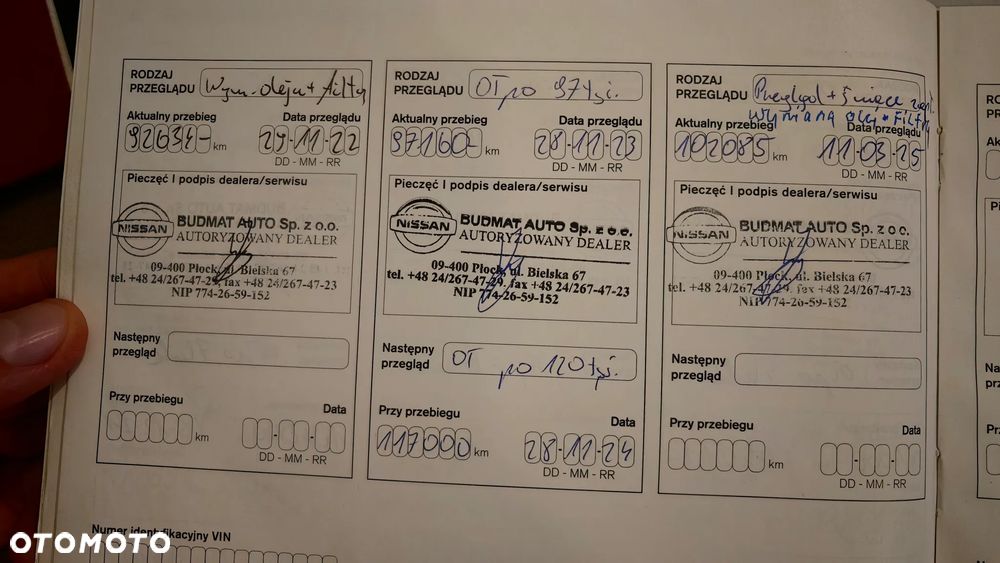 RODZAJ PRZEGLĄDU Wym. oleju + filtry
Aktualny przebieg Data przeglądu
92634- km 29-11-22
DD - MM - RR
Pieczęć I podpis dealera/serwisu
NISSAN BUDMAT AUTO Sp. z o.o.
AUTORYZOWANY DEALER
09-400 Płock, ul. Bielska 67
tel. +48 24/267-47-29, fax +48 24/267-47-23
NIP 774-26-59-152
Następny przegląd
Przy przebiegu Data
km
DD - MM - RR
RODZAJ PRZEGLĄDU OT po 97 tyś.
Aktualny przebieg Data przeglądu
97160- km 28-11-23
DD - MM - RR
Pieczęć I podpis dealera/serwisu
NISSAN BUDMAT AUTO Sp. z o.o.
AUTORYZOWANY DEALER
09-400 Płock, ul. Bielska 67
tel. +48 24/267-47-29, fax +48 24/267-47-23
NIP 774-26-59-152
Następny przegląd OT po 120 tyś.
Przy przebiegu Data
117000 km 28-11-24
DD - MM - RR
RODZAJ PRZEGLĄDU Przegląd + świece
Wymiana olej + Filtry
Aktualny przebieg Data przeglądu
102085 km 11-03-25
DD - MM - RR
Pieczęć I podpis dealera/serwisu
NISSAN BUDMAT AUTO Sp. z o.o.
AUTORYZOWANY DEALER
09-400 Płock, ul. Bielska 67
tel. +48 24/267-47-29, fax +48 24/267-47-23
NIP 774-26-59-152
Następny przegląd
Przy przebiegu Data
km
DD - MM - RR
Numer identyfikacyjny VIN
OTOMOTO